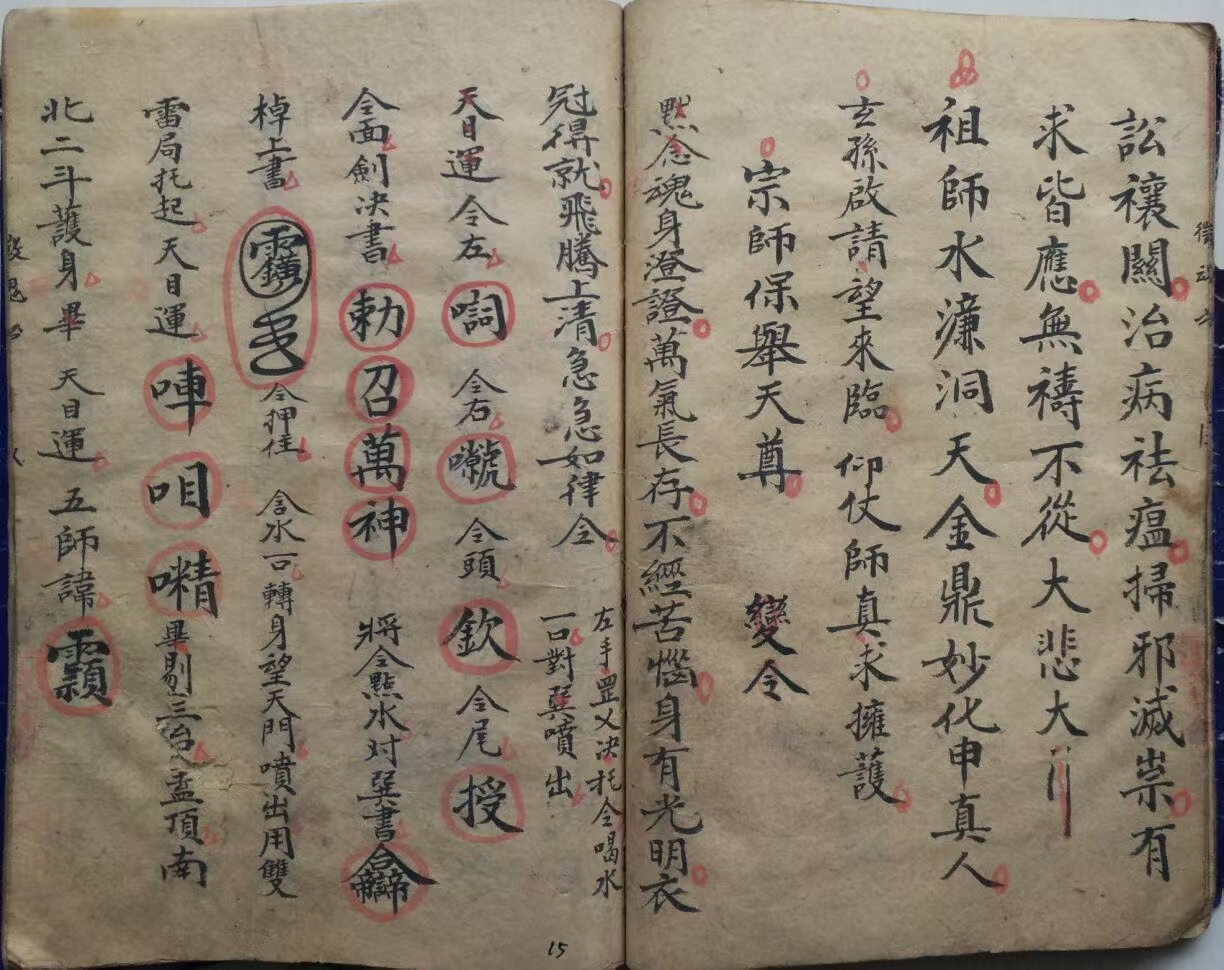 訟禳關治病祛瘟掃邪滅祟有
求皆應無禱不從大悲大
祖師水濂洞天金鼎妙化申真人
玄孫啟請望來臨仰仗師真求擁護
宗師保舉天尊 變令
黙念魂身澄證萬氣長存不經苦惱身有光明衣
冠得就飛騰上清急急如律令
左手罡乂决托令喝水
一口對巽噴出
天目運令左 令右 令頭欽令尾授
令面劍决書勅召萬神 將令點水对巽書
棹上書 令押住 含水一口轉身望天門噴出用雙
雷局托起天目運㖓呾 畢剔三台盖頂南
北二斗護身畢 天目運五師諱
15